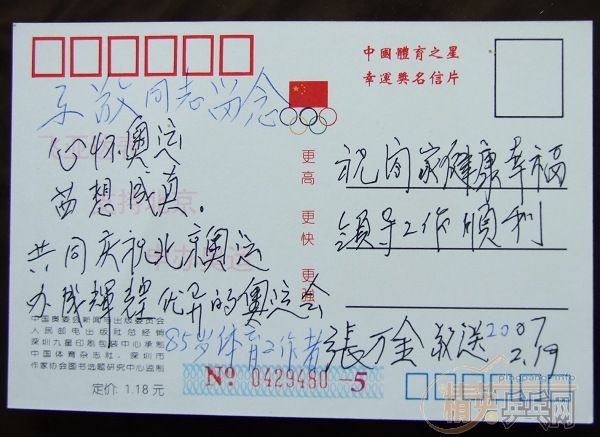 中國體育之星
幸運奬名信片
同志留念
心怀奥运
梦想成真.
支持北京
申办奥运
共同庆祝北京奥运
办成輝煌优异的奥运会
85岁体育工作者
張万金 敬送2007
2.19
祝阖家健康幸福
領导工作順利
更高
更快
更强
中国奥委会新闻电出版委员会
人民邮电出版社总经销
深圳九星印刷包装中心承制
中国体育杂志社、深圳市
作家协会图书选题研究中心监制
定价: 1.18 元
Nº 0429480 -5
pingpangwn.com
精英乒乓网